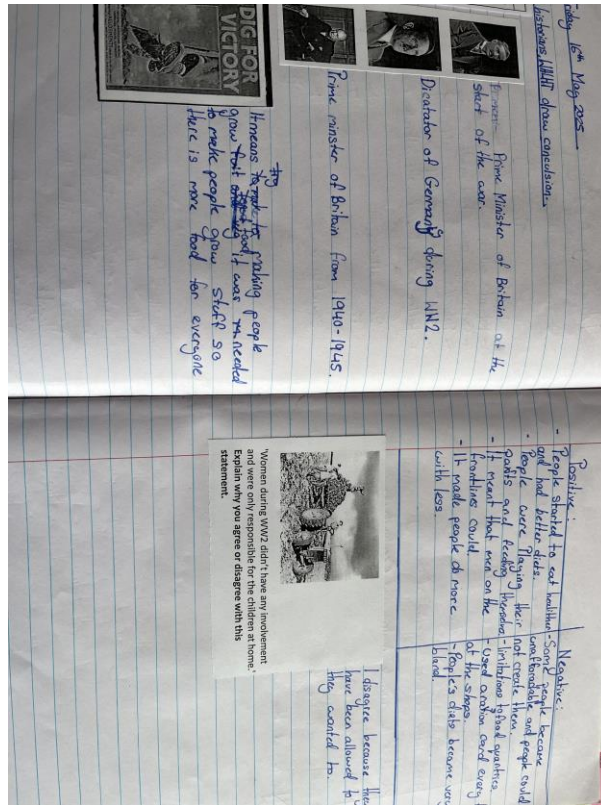 day 16th May 2025
historians WWII draw conculsion.
Prime Minister of Britain at the
start of the war.
Dicatator of Germany during WW2.
Prime minster of Britain from 1940-1945.
DIG FOR
VICTORY
It means try making people
grow food. It was needed
to make people grow stuff so
there is more food for everyone
Positive:
- People started to eat healthier
and had better diets.
- People were playing their
parts and feeding
- It meant that men on the
frontlines could
- It made people do more
with less.
Negative:
- Some people became
unaffordable and people could
not create them.
- limitations to food quantities
- Used a ration card every
at the shops.
- People's diets became very
bland.
'Women during WW2 didn't have any involvement
and were only responsible for the children at home.'
Explain why you agree or disagree with this
statement.
I disagree because they
have been allowed to
they wanted to.